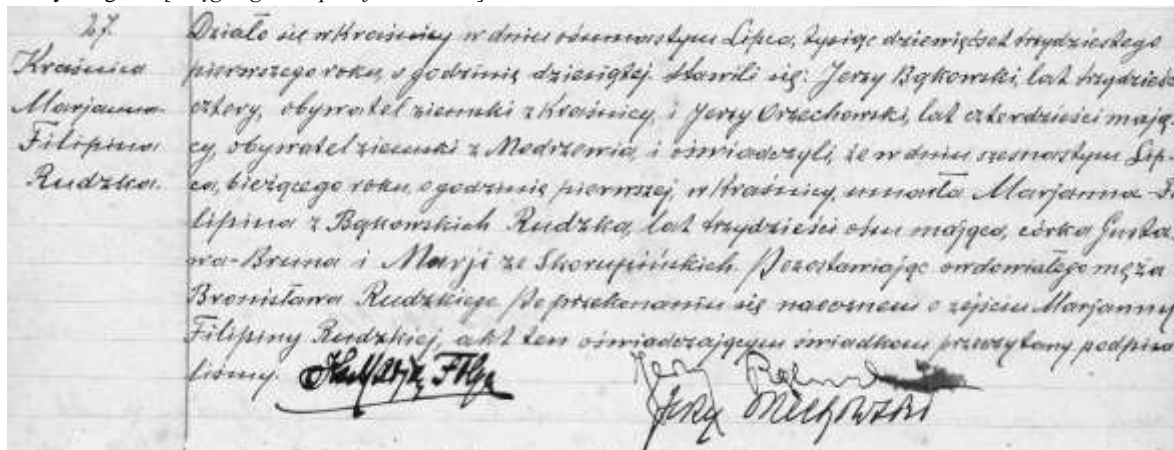 27.
Kraśnica
Marjanna-
Filipina
Rudzka.
Działo się w Kraśnicy w dniu ósmnastym Lipca, tysiąc dziewięćset trzydziestego
pierwszego roku, o godzinie dziesiątej. Stawili się: Jerzy Bąkowski, lat trzydzieści
cztery, obywatel ziemski z Kraśnicy, i Jerzy Orzechowski, lat czterdzieści mają-
cy, obywatel ziemski z Modrzewia, i oświadczyli, że w dniu szesnastym Lip-
ca, bieżącego roku, o godzinie pierwszej, w Kraśnicy, umarła Marjanna-Fi-
lipina z Bąkowskich Rudzka, lat trzydzieści ośm mająca, córka Gusta-
wa-Bruna i Marji ze Skorupińskich. Pozostawiając owdowiałego męża
Bronisława Rudzkiego. Po przekonaniu się naocznem o zejściu Marjanny
Filipiny Rudzkiej, akt ten oświadczającym świadkom przeczytany podpisa-
liśmy.
Jerzy
Jerzy Orzechowski